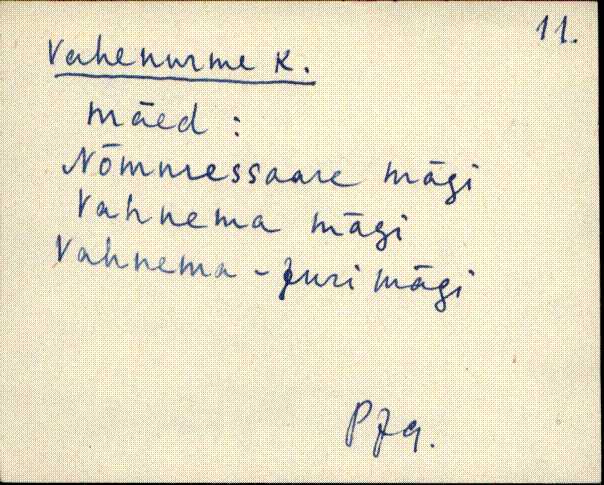 11.
Vahenurme K.
Mäed :
Nõmmessaare mägi
Vahnema mägi
Vahnema - Juri mägi
PJq.